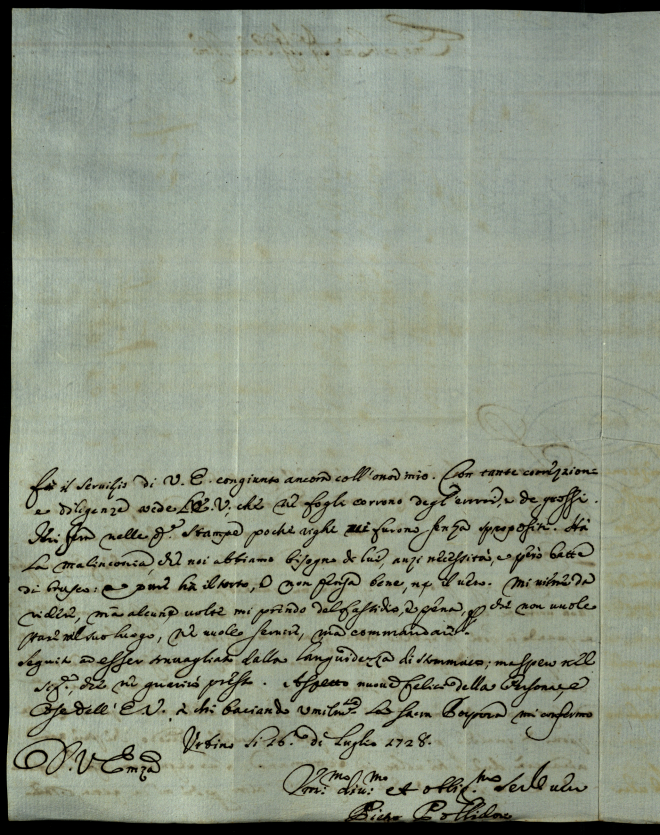 fia il servizio di V. E. congiunto ancora coll'onor mio. Con tante correzioni
e diligenze vide V. E. V. che ne' fogli corrono degl'errori, e de grossi.
nelle stampe poche righe furono senza spropositi. Hà
la malinconia che noi abbiamo bisogno di lui, anzi necessità, e però batte
di brusco: e pure ha il torto, e non pensa bene, nè il vero. Mi viene da
ridere, ma alcune volte mi prendo del fastidio, e pena, che non vuole
stare nel suo luogo, nè vuole servire, ma commandare.
Seguita ad esser travagliato dalla languidezza di stommaco; ma spero nel
Sig.re che ne guarirà presto. Aspetto nuove felici della Persona, e
Cose dell'E. V. a chi baciando umilm.te La Sacra Porpora mi confermo
Urbino li 16. di Luglio 1728.
D. V. Emza
Um.mo div.mo et oblig.mo Servitore
Pietro Pollidori